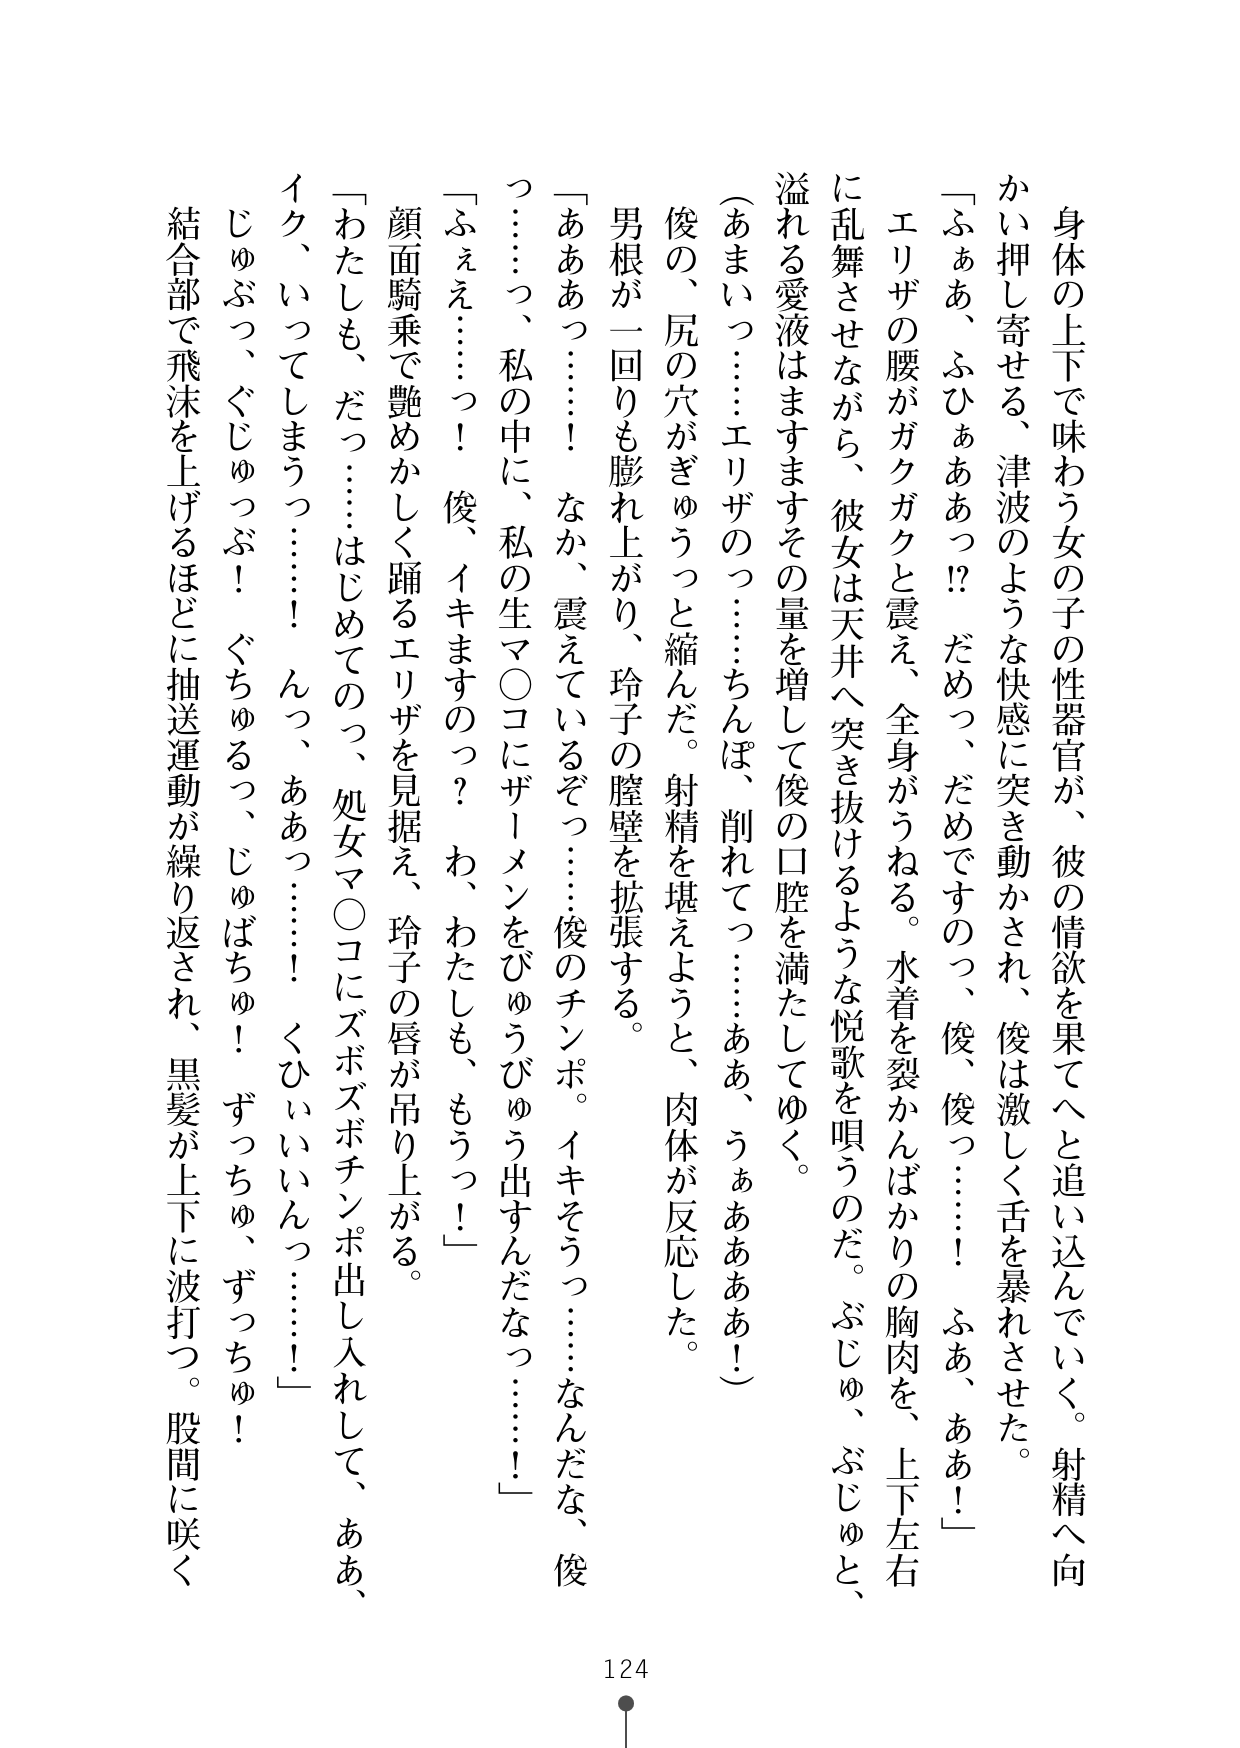 身体の上下で味わう女の子の性器官が、彼の情欲を果てへと追い込んでいく。射精へ向
かい押し寄せる、津波のような快感に突き動かされ、俊は激しく舌を暴れさせた。
「ふぁあ、ふひぁああっ!?　だめっ、だめですのっ、俊、俊っ……！　ふあ、ああ！」
エリザの腰がガクガクと震え、全身がうねる。水着を裂かんばかりの胸肉を、上下左右
に乱舞させながら、彼女は天井へ突き抜けるような悦歌を唄うのだ。ぶじゅ、ぶじゅと、
溢れる愛液はますますその量を増して俊の口腔を満たしてゆく。
（あまいっ……エリザのっ……ちんぽ、削れてっ……ああ、うぁああああ！）
俊の、尻の穴がぎゅうっと縮んだ。射精を堪えようと、肉体が反応した。
男根が一回りも膨れ上がり、玲子の膣壁を拡張する。
「あああっ……！　なか、震えているぞっ……俊のチンポ。イキそうっ……なんだな、俊
っ……っ、私の中に、私の生マ〇コにザーメンをびゅうびゅう出すんだなっ……！」
「ふぇえ……っ！　俊、イキますのっ？　わ、わたしも、もうっ！」
顔面騎乗で艶めかしく踊るエリザを見据え、玲子の唇が吊り上がる。
「わたしも、だっ……はじめてのっ、処女マ〇コにズボズボチンポ出し入れして、ああ、
イク、いってしまうっ……！　んっ、ああっ……！　くひぃいいんっ……！」
じゅぶっ、ぐじゅっぶ！　ぐちゅるっ、じゅばちゅ！　ずっちゅ、ずっちゅ！
結合部で飛沫を上げるほどに抽送運動が繰り返され、黒髪が上下に波打つ。股間に咲く
124